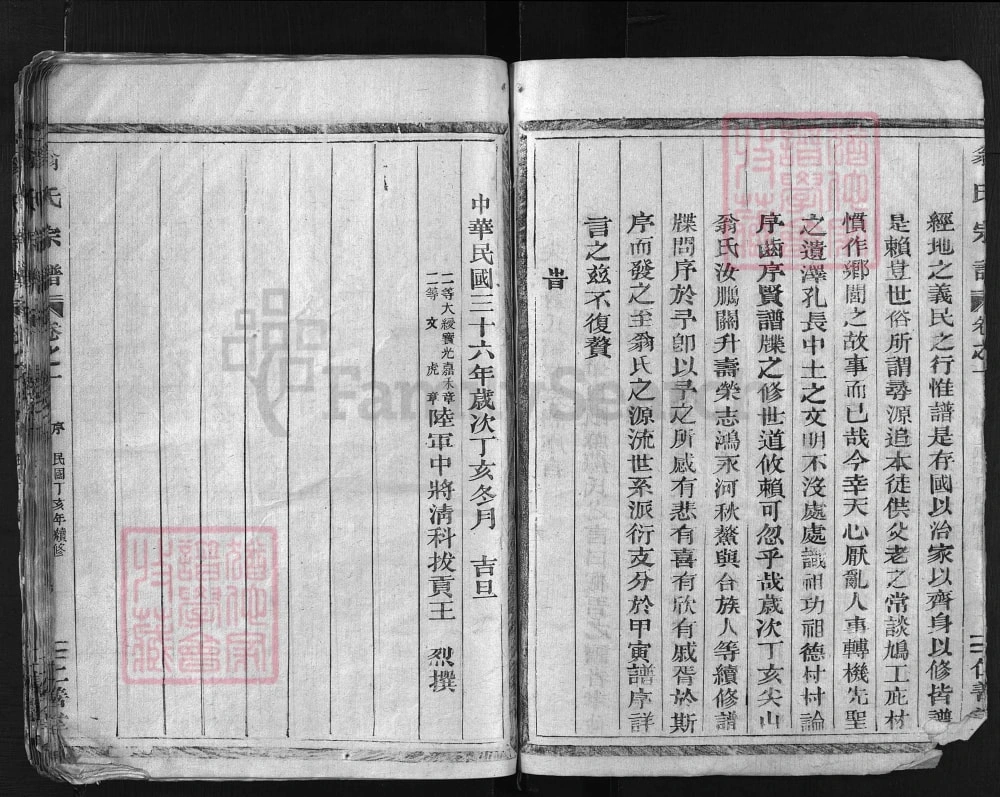 翁氏宗譜 卷之一
經地之義民之行惟譜是存國以治家以齊身以修皆譜
是賴豈世俗所謂尋源追本徒供父老之常談鳩工庇材
慣作鄉閭之故事而已哉今幸天心厭亂人事轉機先聖
之遺澤孔長中土之文明不沒處處識祖功祖德村村論
序齒序賢譜牒之修世道攸賴可忽乎哉歲次丁亥尖山
翁氏汝鵬關升壽榮志鴻永河秋鰲與台族人等續修譜
牒問序於予卽以予之所感有悲有喜有欣有戚胥於斯
序而發之至翁氏之源流世系派衍支分於甲寅譜序詳
言之茲不復贅
旹
中華民國三十六年歲次丁亥冬月 吉旦
二等大綬寶光嘉禾章
二等文虎章
陸軍中將清科拔貢王 烈撰
翁氏宗譜 卷之一 序 民國丁亥年續修
FamilySearch